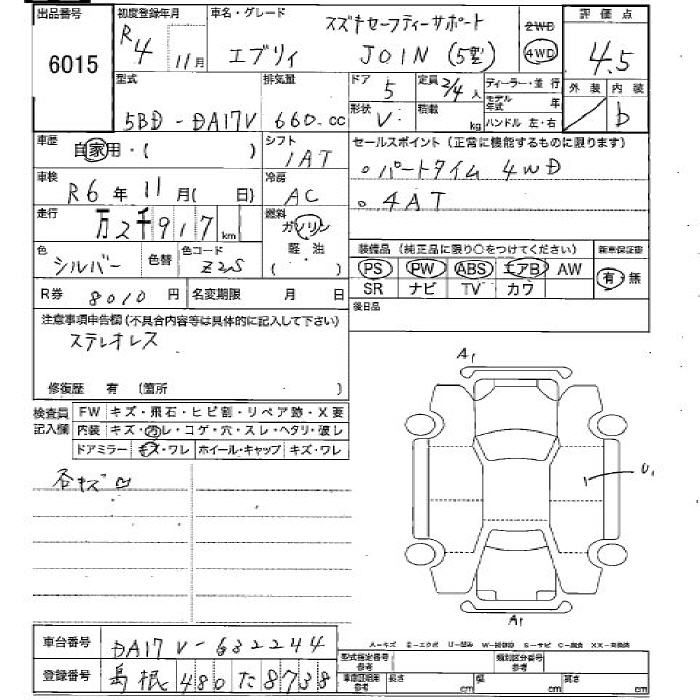 出品番号
6015
初度登録年月
R4 11月
車名・グレード
スズキセーフティーサポート
エブリィ JOIN (5型)
2WD
4WD
評価点
4.5
外装 内装
b
型式
5BD-DA17V
排気量
660 cc
ドア
5
定員
2/4人
形状
V
積載
kg
ディーラー・並行
モデル年式 年
ハンドル 左・右
車歴
自家用・( )
シフト
IAT
セールスポイント(正常に機能するものに限ります)
パートタイム 4WD
4AT
車検
R6年11月( 日)
冷房
AC
走行
万2千917km
燃料
ガソリン
軽油
( ・ )
色
シルバー
色替
色コード
Z2S
装備品(純正品に限り○をつけてください)
PS PW ABS エアB AW
SR ナビ TV カワ
新車保証書
有・無
R券 8010円
名変期限 月 日
後日品
注意事項申告欄(不具合内容等は具体的に記入して下さい)
ステレオレス
修復歴 有 (箇所 )
検査員記入欄
FW キズ・飛石・ヒビ割・リペア跡・X要
内装 キズ・汚レ・コゲ・穴・スレ・ヘタリ・破レ
ドアミラー キズ・ワレ ホイール・キャップ キズ・ワレ
各キズ凹
A1
U1
A1
A-キズ E-エクボ U-凹み W-補修跡 S-サビ C-腐食 XX-交換済
車台番号
DA17V-632244
登録番号
島根 480 た 8738
型式指定番号 参考
類別区分番号 参考
車庫証明用 参考
長さ cm
幅 cm
高さ cm